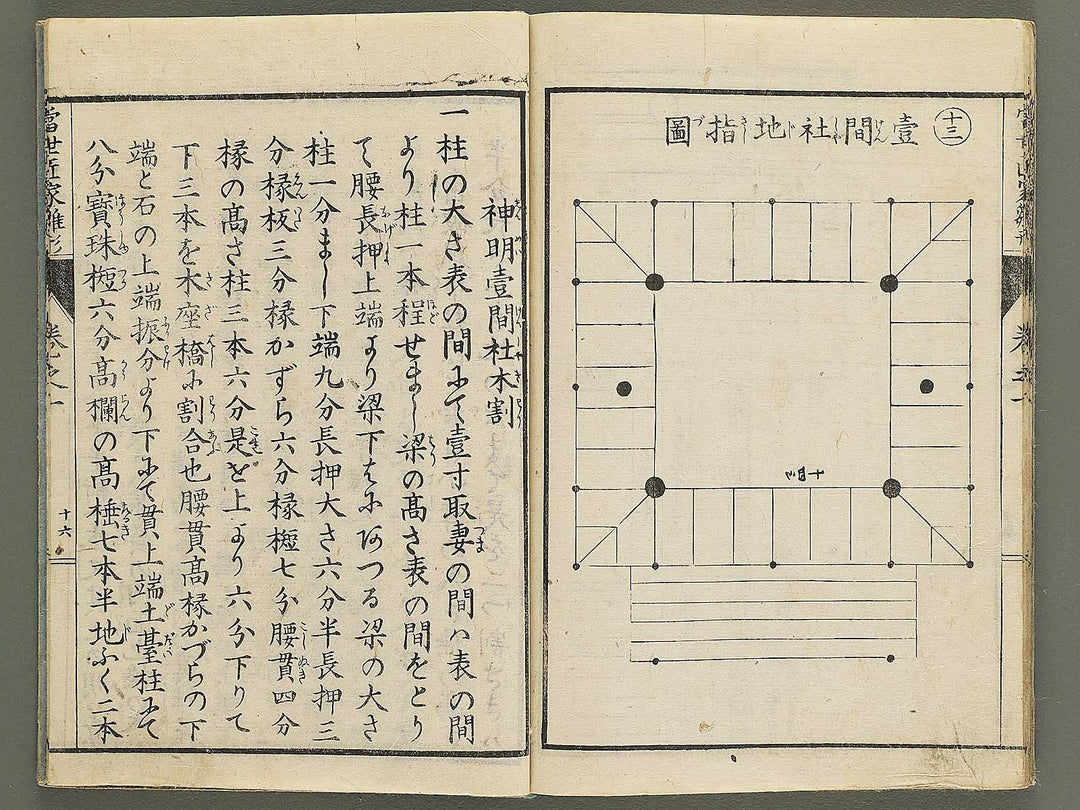 十三
壹間社地指圖
神明壹間社木割
一柱の大さ表の間にて壹寸取妻の間ハ表の間
より柱一本程せまし梁の高さ表の間をとり
て腰長押上端より梁下はにあつる梁の大さ
柱一分まし下端九分長押大さ六分半長押三
分椽板三分椽かずら六分椽𣖔七分腰貫四分
椽の髙さ柱三本六分是を上より六分下りて
下三本を木座橋に割合也腰貫髙椽かづらの下
端と石の上端振分より下にて貫上端土臺柱にて
八分寳珠𣖔六分髙欄の髙𣖔七本半地ふく二本
當世匠家雛形
巻之一
十六